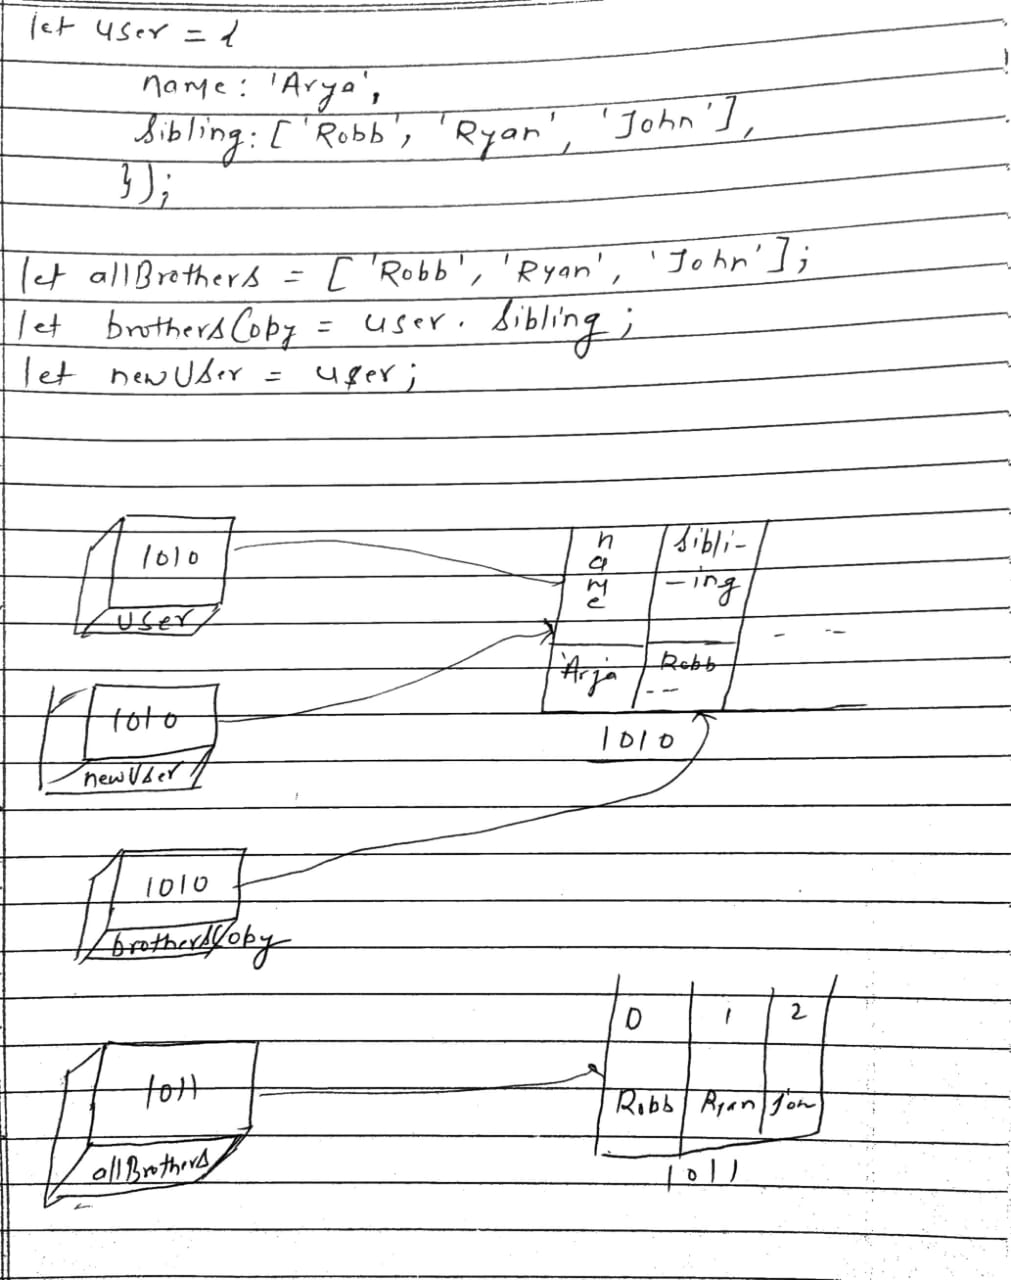 let user = {
name: 'Arya',
sibling: [ 'Robb', 'Ryan', 'John'],
});
let allBrothers = [ 'Robb', 'Ryan', 'John'];
let brothersCopy = user. sibling;
let newUser = user;
1010
user
name
sibli-
-ing
'Arja
Robb
--
- --
1010
newUser
1010
1010
brothersCopy
0 1 2
1011
Robb Ryan Jon
allBrothers
1011